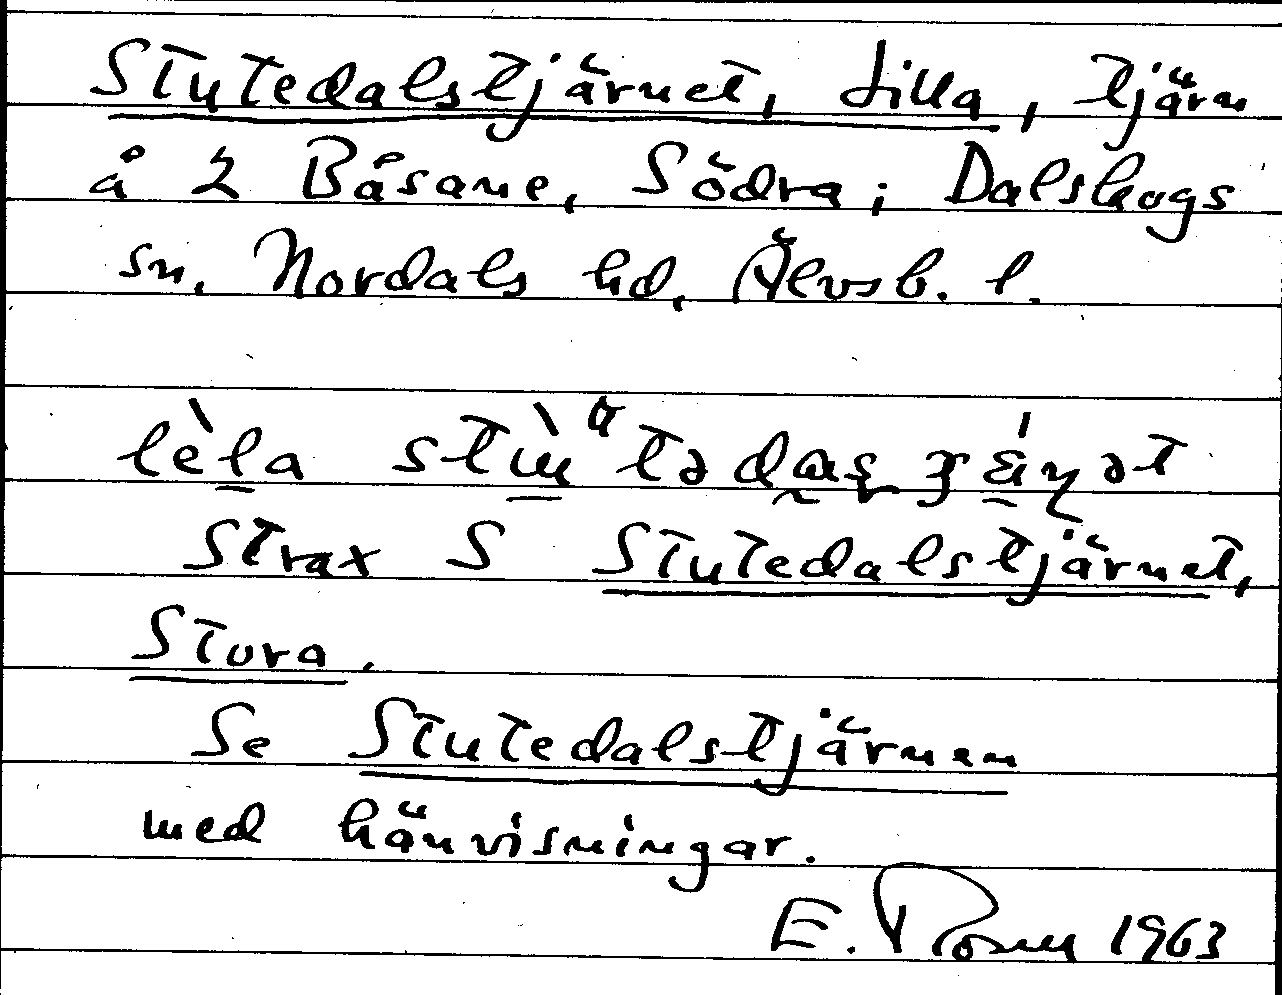 Stutedalstjärnet, Lilla, tjärn
å 2 Båsane, Södra; Dalskogs
sn. Nordals hd, Älvsb. l.
Strax S Stutedalstjärnet,
Stora.
Se Stutedalstjärnen
med hänvisningar.
E. 1963